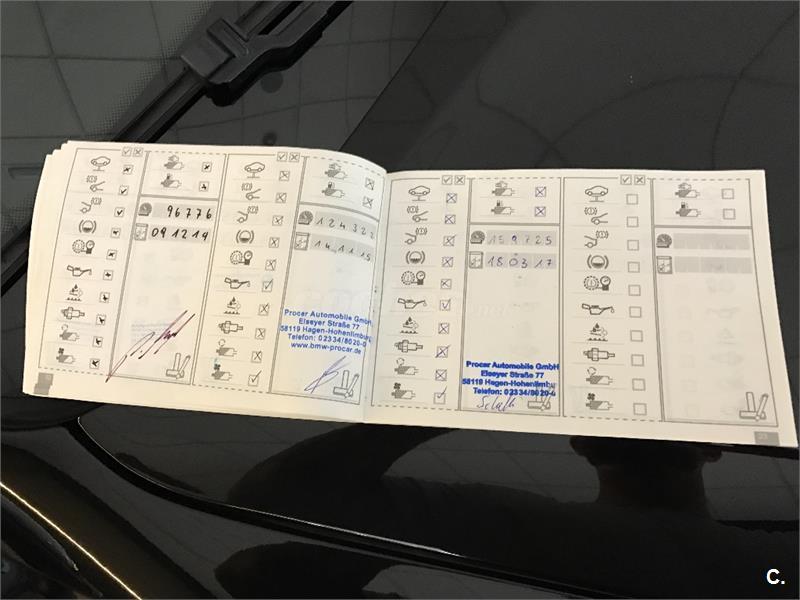 96776
091214
124322
14.11.15
Procar Automobile GmbH
Elseyer Straße 77
58119 Hagen-Hohenlimburg
Telefon: 02334/8020-0
www.bmw-procar.de
159725
180317
Procar Automobile GmbH
Elseyer Straße 77
58119 Hagen-Hohenlimburg
Telefon: 02334/8020-0
23
C.